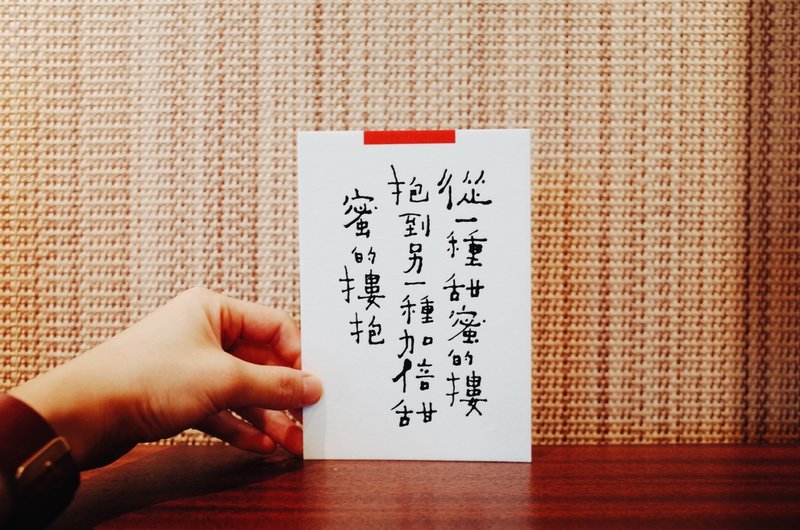 從一種甜蜜的摟
抱到另一種加倍甜
蜜的摟抱